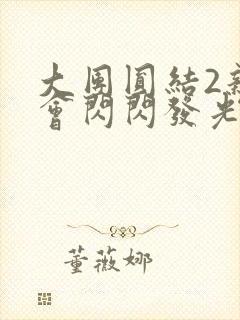 大團圓結2新
會閃閃發光
董薇娜